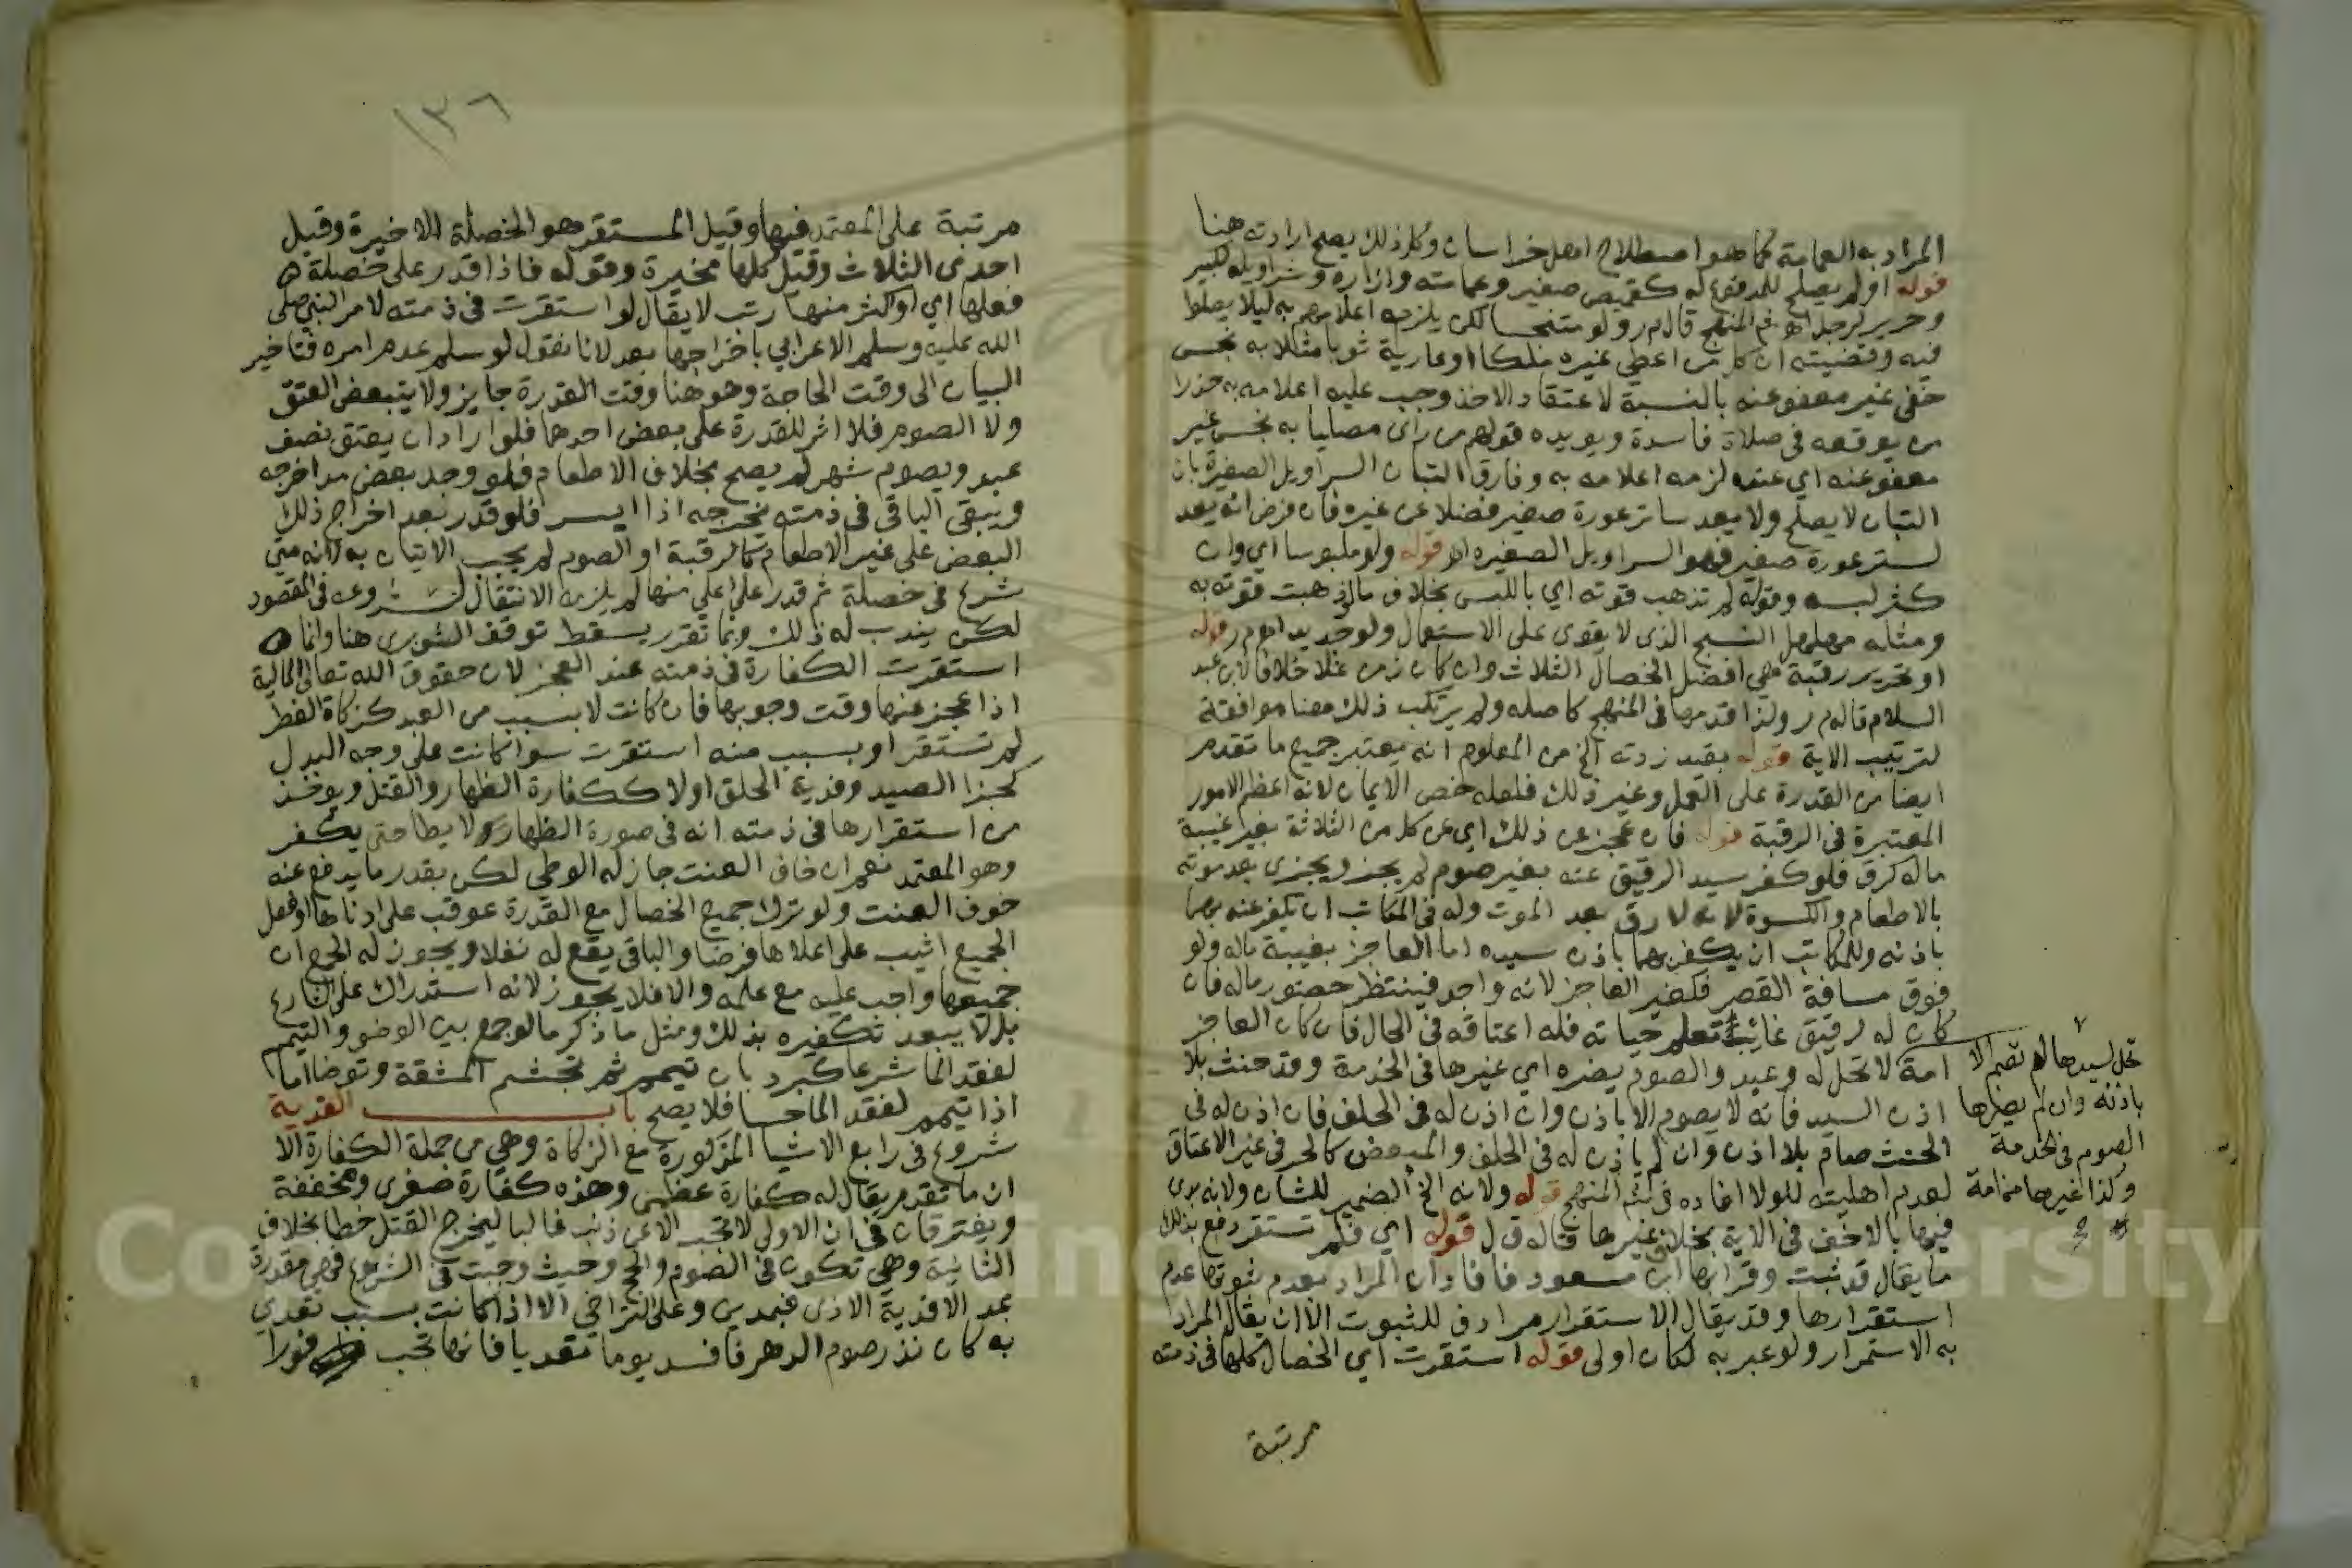 المراد به العمامة كما هو اصطلاح اهل خراسان وكل ذلك يصلح ارادته هنا
قوله او لم يصلح للمدفوع له كقميص صغير وعمامته وازاره وسراويله لكبير
وحرير لرجل اه في المنهج قال م ر ولو متنجسا لكن يلزمه اعلامهم به ليلا يصلوا
فيه وقضيته ان كل من اعطي غيره ملكا او عارية ثوبا مثلا به نجس
خفي غير معفو عنه بالنسبة لاعتقاد الاخذ وجب عليه اعلامه به حذرا
من يوقعه في صلاة فاسدة ويويده قولهم من راى مصليا به نجس غير
معفو عنه اي عنده لزمه اعلامه به وفارق التبان السراويل الصغيرة بان
التبان لا يصلح ولا يعد ساتر عورة صغير فضلا عن غيره فان فرض انه يعد
لستر عورة صغير فهو السراويل الصغيره اه قوله ولو ملبوسا اي وان
كثر لبسه وقوله لم تذهب قوته اي باللبس بخلاف ما لو ذهبت قوته به
ومثله مهلهل النسج الذي لا يقوى على الاستعمال ولو جديدا اه م ر قوله
او تحرير رقبة هي افضل الخصال الثلاث وان كان زمن غلا خلافا لابن عبد
السلام قاله م ر ولذا قدمها في المنهج كاصله ولم يرتكب ذلك هنا موافقة
لترتيب الاية قوله بقيد زدته الخ من المعلوم انه يعتبر جميع ما تقدم
ايضا من القدرة على العمل وغير ذلك فلعله خص الايمان لانه اعظم الامور
المعتبرة في الرقبة قوله فان عجز عن ذلك اي عن كل من الثلاثة بغير غيبة
ماله كرق فلو كفر سيد الرقيق عنه بغير صوم لم يجز ويجزي بعد موته
بالاطعام والكسوة لانه لا رق بعد الموت وله في المكاتب ان يكفر عنه بهما
باذنه وللمكاتب ان يكفر بهما باذن سيده اما العاجز بغيبة ماله ولو
فوق مسافة القصر فكغير العاجز لانه واجد فينتظر حضور ماله فان
كان له رقيق غائب تعلم حياته فله اعتاقه في الحال فان كان العاجز
امة لا تحل له وعبد والصوم يضره اي غيرها في الخدمة وقد حنث بلا
اذن السيد فانه لا يصوم الا باذن وان اذن له في الحلف فان اذن له في
الحنث صام بلا اذن وان لم ياذن له في الحلف والمبعض كالحر في غير الاعتاق
لعدم اهليته للولا افاده في المنهج قوله ولانه الخ الضمير للشان ولانه
فيها بالاخف في الاية بخلاف غيرها قاله ق ل قوله اي فلم تستقر دفع بذلك
ما يقال قد ثبت وقرا بها ابن مسعود فافاد ان المراد بعدم ثبوتها عدم
استقرارها وقد يقال الاستقرار مرادف للثبوت الا ان يقال المراد
به الاستمرار ولو عبر به لكان اولى قوله استقرت اي الخصال كلها في ذمته
مرتبة
تحل لسيدها لم تصم الا
باذنه وان لم يضرها
الصوم في الخدمة
وكذا غيرها من امة
١٣٦
مرتبة على المعتمد فيها وقيل المستقر هو الخصلة الاخيرة وقيل
احدى الثلاث وقيل كلها مخيرة وقوله فاذا قدر على خصلة
فعلها اي او اكثر منها رتب لا يقال لو استقرت في ذمته لامر النبي صلى
الله عليه وسلم الاعرابي باخراجها بعد لانا نقول لو سلم عدم امره فتاخير
البيان الى وقت الحاجة وهو هنا وقت القدرة جايز ولا يتبعض العتق
ولا الصوم فلا اثر للقدرة على بعض احدهما فلو اراد ان يعتق نصف
عبد ويصوم شهر لم يصح بخلاف الاطعام فلو وجد بعض مد اخرجه
ويبقى الباقي في ذمته يخرجه اذا ايسر فلو قدر بعد اخراج ذلك
البعض على غير الاطعام كالرقبة او الصوم لم يجب الاتيان به لانه متى
شرع في خصلة ثم قدر على اعلى منها لم يلزمه الانتقال لشروعه في المقصود
لكن يندب له ذلك وبما تقرر يسقط توقف الشوبري هنا وانما
استقرت الكفارة في ذمته عند العجز لان حقوق الله تعالى المالية
اذا عجز عنها وقت وجوبها فان كانت لا بسبب من العبد كزكاة الفطر
لم تستقر او بسبب منه استقرت سوا كانت على وجه البدل
كجزا الصيد وفدية الحلق اولا ككفارة الظهار والقتل ويوخذ
من استقرارها في ذمته انه في صورة الظهار لا يطا حتى يكفر
وهو المعتمد نعم ان خاف العنت جاز له الوطي لكن بقدر ما يدفع عنه
خوف العنت ولو ترك جميع الخصال مع القدرة عوقب على ادناها او فعل
الجميع اثيب على اعلاها فرضا والباقي يقع له نفلا ويجوز له الجمع ان
جميعها واجب عليه مع علمه والا فلا يجوز لانه استدراك على الشارع
بل لا يبعد تكفيره بذلك ومثل ما ذكر ما لو جمع بين الوضو والتيمم
لفقد الما شرعا كبرد بان تيمم ثم تجشم المشقة وتوضا اما
اذا تيمم لفقد الما حسا فلا يصح باب الفدية
شروع في رابع الاشيا المذكورة مع الزكاة وهي من جملة الكفارة الا
ان ما تقدم يقال له كفارة عظمى وهذه كفارة صغرى ومخففة
ويفترقان في ان الاولى لا تجب الا عن ذنب غالبا ليخرج القتل خطا بخلاف
الثانية وهي تكون في الصوم والحج وحيث وجبت في الشرع فهي مقدرة
بمد الا فدية الاذى فبمدين وعلى التراخي الا اذا كانت بسبب تعدي
به كان نذر صوم الدهر فافسد يوما تعديا فانها تجب فورا